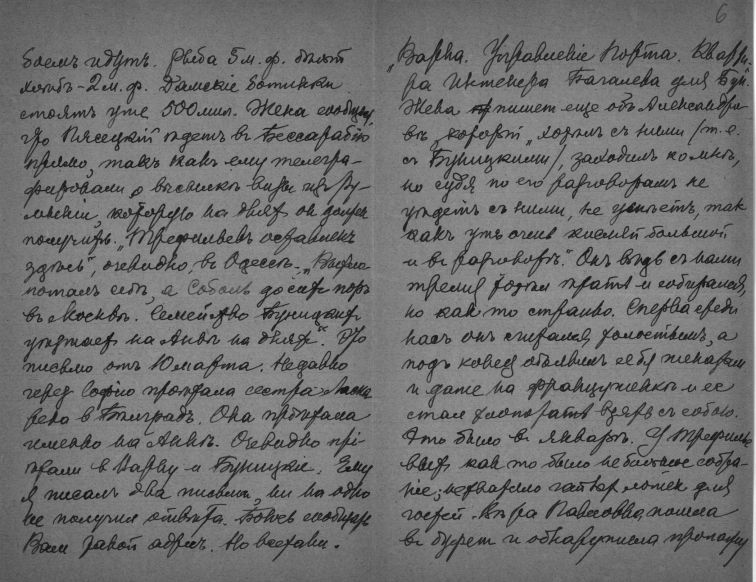 боемъ идутъ. Рыба 5 м. ф. бѣлый
хлѣбъ – 2 м. ф. Дамскіе ботинки
стоятъ уже 500 мил. Жена сообщ.
что Пясецкій ѣдетъ въ Бессарабію
прямо, такъ какъ ему телегра-
фировали о высылкѣ визы изъ Ру-
мыніи, которую на дняхъ онъ долженъ
получить. „Трефильевъ оставленъ
здѣсь“, очевидно, въ Одессѣ. –
а Соболь до сихъ поръ
въ Москвѣ. Семейство Буницкихъ
уѣзжаетъ на Аннѣ на дняхъ.“ Это
письмо отъ 10 марта. Недавно
через Софію проѣхала сестра
въ Бѣлградъ. Она пріѣхала
именно на Аннѣ. Очевидно прі-
ѣхали в Варну и Буницкіе. Ему
я писалъ два письма, ни на одно
не получил отвѣта. сообщилъ
Вам такой адрес. Но
6
„Варна. Управленіе Порта. Кварти-
ра Инженера Багалева для Бун.
Жена пишет еще объ Александро-
вѣ, который „ходилъ съ ними (т. е.
съ Буницкими), заходилъ ко мнѣ,
но судя по его разговорамъ не
уѣдетъ съ ними, не успѣетъ, такъ
какъ ужъ очень кисляй большой
и въ разговорѣ.“ Онъ вѣдь съ нами
тремя хотѣл ѣхать и собирался,
но какъ то странно. Сперва среди
насъ онъ считался холостымъ, а
подъ конец объявилъ себя женатым
и даже на француженкѣ и ее
стал хлопотать взять съ собою.
Это было въ январѣ. У Трефилье-
выхъ как то было небольшое собра-
ніе; не хватало чайных ложек для
гостей. Вѣра Павловна пошла
въ буфет и обнаружила пропажу